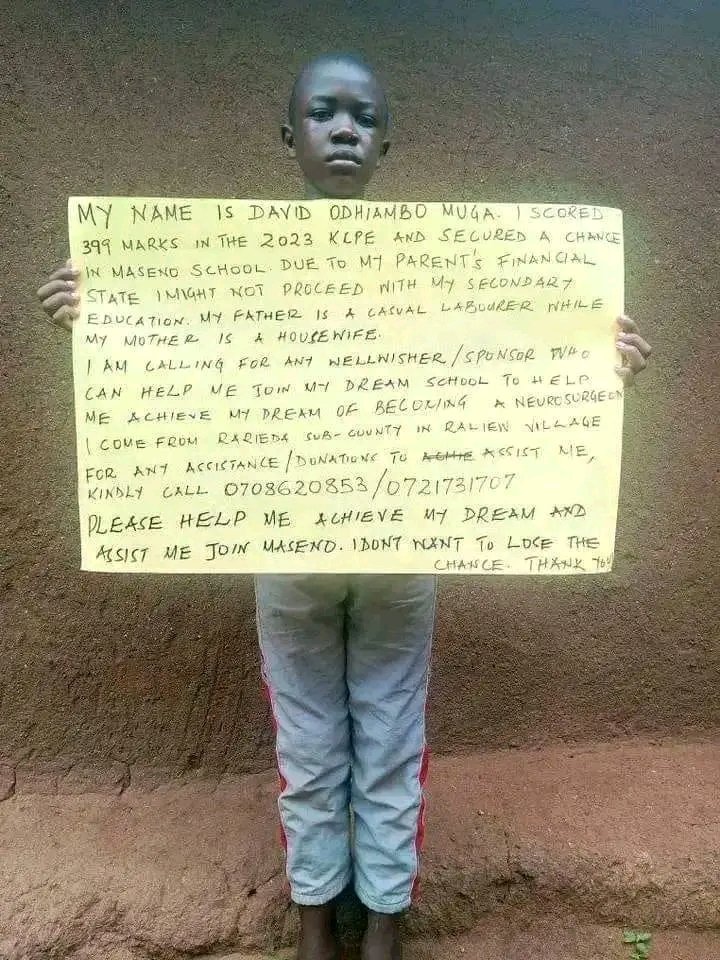 MY NAME IS DAVID ODHIAMBO MUGA. I SCORED
399 MARKS IN THE 2023 KCPE AND SECURED A CHANCE
IN MASENO SCHOOL. DUE TO MY PARENT'S FINANCIAL
STATE I MIGHT NOT PROCEED WITH MY SECONDARY
EDUCATION. MY FATHER IS A CASUAL LABOURER WHILE
MY MOTHER IS A HOUSEWIFE.
I AM CALLING FOR ANY WELLWISHER/SPONSOR WHO
CAN HELP ME JOIN MY DREAM SCHOOL TO HELP
ME ACHIEVE MY DREAM OF BECOMING A NEUROSURGEON
I COME FROM RARIEDA SUB-COUNTY IN RALIEW VILLAGE
FOR ANY ASSISTANCE/DONATIONS TO ASSIST ME,
KINDLY CALL 0708620853/0721731707
PLEASE HELP ME ACHIEVE MY DREAM AND
ASSIST ME JOIN MASENO. I DONT WANT TO LOSE THE
CHANCE. THANK YOU